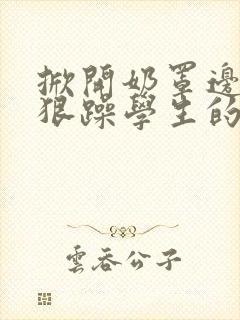 掀開奶罩邊
狠躁學生的
雲吞公子